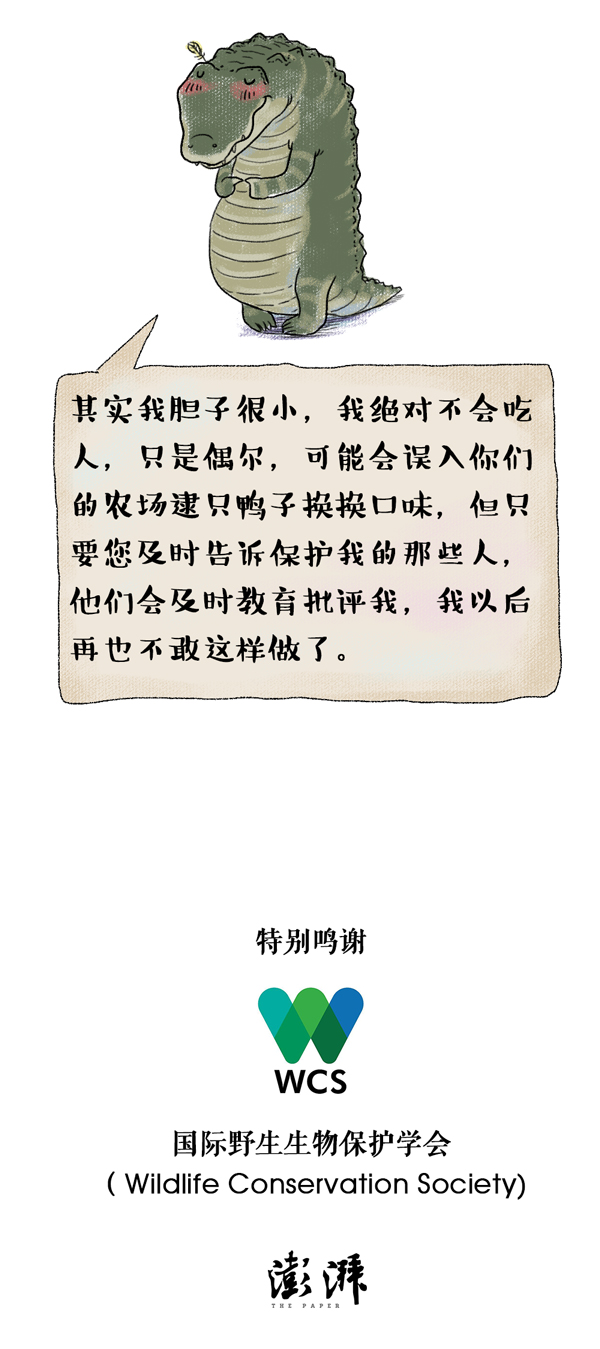 其实我胆子很小，我绝对不会吃
人，只是偶尔，可能会误入你们
的农场逮只鸭子换换口味，但只
要您及时告诉保护我的那些人，
他们会及时教育批评我，我以后
再也不敢这样做了。
特别鸣谢
WCS
国际野生生物保护学会
( Wildlife Conservation Society)
澎湃
THE PAPER